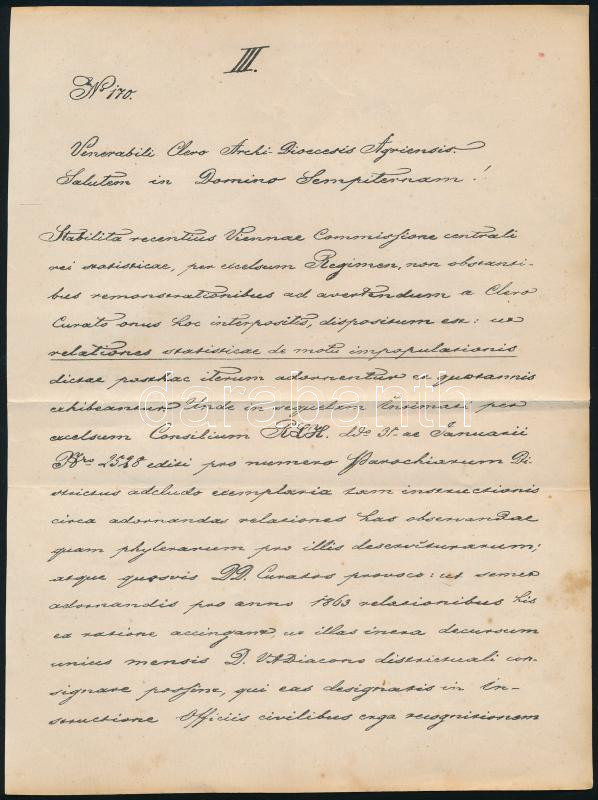 III.
No 170.
Venerabili Clero Archi-Dioecesis Agriensis.
Salutem in Domino Sempiternam!
Stabilita recentius Viennae Commissione centrali
rei statisticae, per excelsum Regimen, non obstanti-
bus remonstrationibus ad avertendum a Clero
Curato onus hoc interpositis, dispositum est: ut
relationes statisticae de motu impopulationis
dictae posthac iterum adornentur et quotannis
exhibeantur. Unde in sequelam Intimati per
excelsum Consilium R.L.H. ddo 31. ae Januarii
Nro 2528 editi pro numero Parochiarum Di-
strictus adcludo exemplaria tam instructionis
circa adornandas relationes has observandae
quam phylerarum pro illis deserviturarum;
atque quosvis D.D. Curatos provoco: ut semet
adornandis pro anno 1863 relationibus his
ea ratione accingant, ut illas intra decursum
unius mensis D. V.A.Diacono districtuali con-
signare possint, qui eas designatis in In-
structione Officiis civilibus erga recognitionem
darabanth